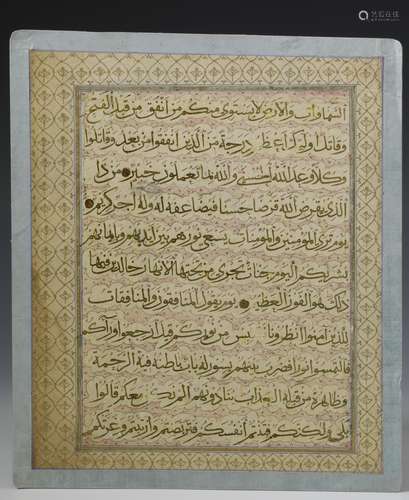 艺狐在线
السماوات والارض لا يستوى منكم من انفق من قبل الفتح
وقاتل اولئك اعظم درجة من الذين انفقوا من بعد وقاتلوا
وكلا وعد الله الحسنى والله بما تعملون خبير من ذا
الذى يقرض الله قرضا حسنا فيضاعفه له وله اجر كريم
يوم ترى المؤمنين والمؤمنات يسعى نورهم بين ايديهم وبايمانهم
بشريكم اليوم جنات تجرى من تحتها الانهار خالدين فيها
ذلك هو الفوز العظيم يوم يقول المنافقون والمنافقات
للذين امنوا انظرونا نقتبس من نوركم قيل ارجعوا وراءكم
فالتمسوا نورا فضرب بينهم بسور له باب باطنه فيه الرحمة
وظاهره من قبله العذاب ينادونهم الم نكن معكم قالوا
بلى ولكنكم فتنتم انفسكم وتربصتم وارتبتم وغرتكم